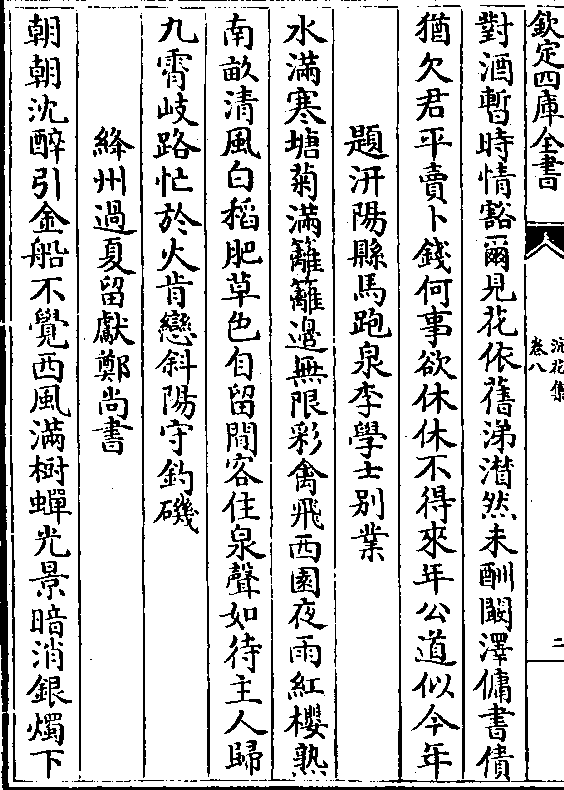 欽定四庫全書
浣花集
卷八
二
對酒暫時情豁爾見花依舊涕潸然未酬闞澤傭書債
猶欠君平賣卜錢何事欲休休不得來年公道似今年
題汧陽縣馬跑泉李學士别業
水滿寒塘菊滿籬籬邊無限彩禽飛西園夜雨紅櫻熟
南畝清風白稻肥草色自留閒客住泉聲如待主人歸
九霄岐路忙於火肯戀斜陽守釣磯
絳州過夏留獻鄭尚書
朝朝沈醉引金船不覺西風滿樹蟬光景暗消銀燭下